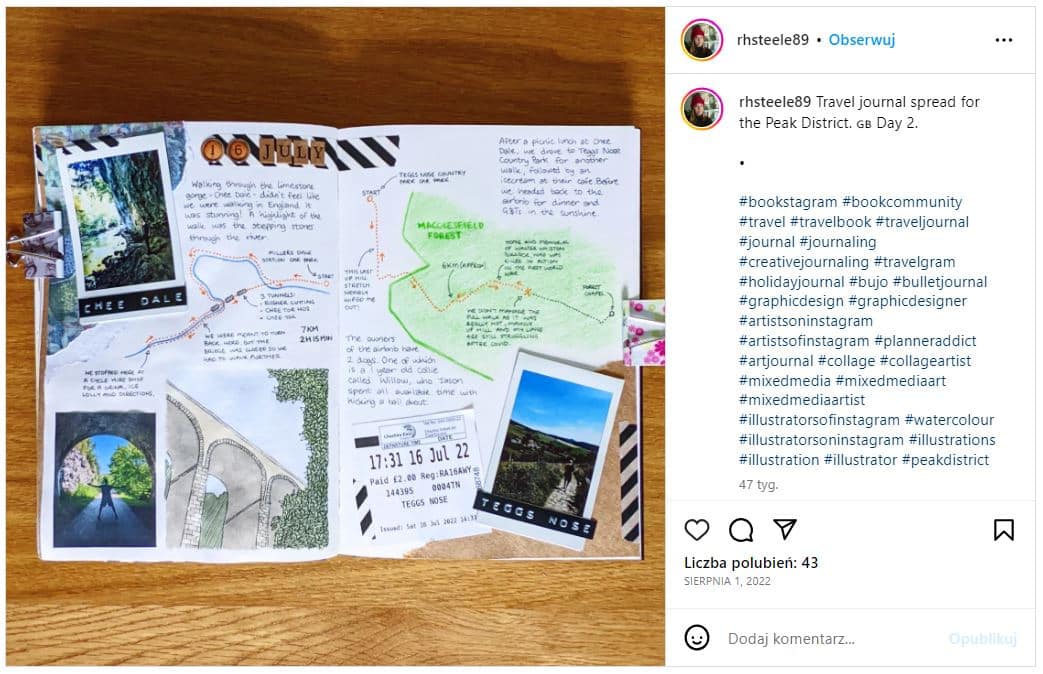 16 JULY
Walking through the limestone
gorge - Chee Dale - didn't feel like
we were walking in England it
was stunning! A highlight of the
walk was the stepping stones
through the river.
CHEE DALE
MILLERS DALE
STATION CAR PARK
START
3 TUNNELS:
- RUSHER CUTTING
- CHEE TOR NO2
- CHEE TOR
WE WERE MEANT TO TURN
BACK HERE, BUT THE
BRIDGE WAS CLOSED SO WE
HAD TO WALK FURTHER.
7KM
2H15MIN
WE STOPPED HERE AT
A CYCLE HIRE SHOP
FOR A DRINK, ICE
LOLLY AND DIRECTIONS.
TEGGS NOSE COUNTRY
PARK CAR PARK
START
After a picnic lunch at Chee
Dale, we drove to Teggs Nose
Country Park for another
walk, followed by an
icecream at their cafe. Before
we headed back to the
airbnb for dinner and
G&Ts in the sunshine.
MACCLESFIELD
FOREST
6KM (APPROX)
TOMB AND MEMORIAL
OF WALTER
WHO WAS
KILLED IN ACTION
IN THE FIRST WORLD
WAR
FOREST
CHAPEL
THIS LAST
UP HILL
STRETCH
NEARLY
WIPED ME
OUT!
WE DIDN'T MANAGE THE
FULL WALK AS IT WAS
REALLY HOT, MAINLY
UP HILL AND MY LUNGS
ARE STILL STRUGGLING
AFTER COVID.
The owners
of the airbnb have
2 dogs. One of which
is a 1 year old collie
called Willow, who Jason
spent all available time with
kicking a ball about.
Cheshire East
DEPARTURE TIME DATE
17:31 16 Jul 22
Paid £2.00 Reg:RA16AWY
144395 0004TN
TEGGS NOSE
Issued: Sat 16 Jul 2022 14:31
TEGGS NOSE
rhsteele89 • Obserwuj
rhsteele89 Travel journal spread for
the Peak District. GB Day 2.
•
#bookstagram #bookcommunity
#travel #travelbook #traveljournal
#journal #journaling
#creativejournaling #travelgram
#holidayjournal #bujo #bulletjournal
#graphicdesign #graphicdesigner
#artistsoninstagram
#artistsofinstagram #planneraddict
#artjournal #collage #collageartist
#mixedmedia #mixedmediaart
#mixedmediaartist
#illustratorsofinstagram #watercolour
#illustratorsoninstagram #illustrations
#illustration #illustrator #peakdistrict
47 tyg.
Liczba polubień: 43
SIERPNIA 1, 2022
Dodaj komentarz...
Opublikuj